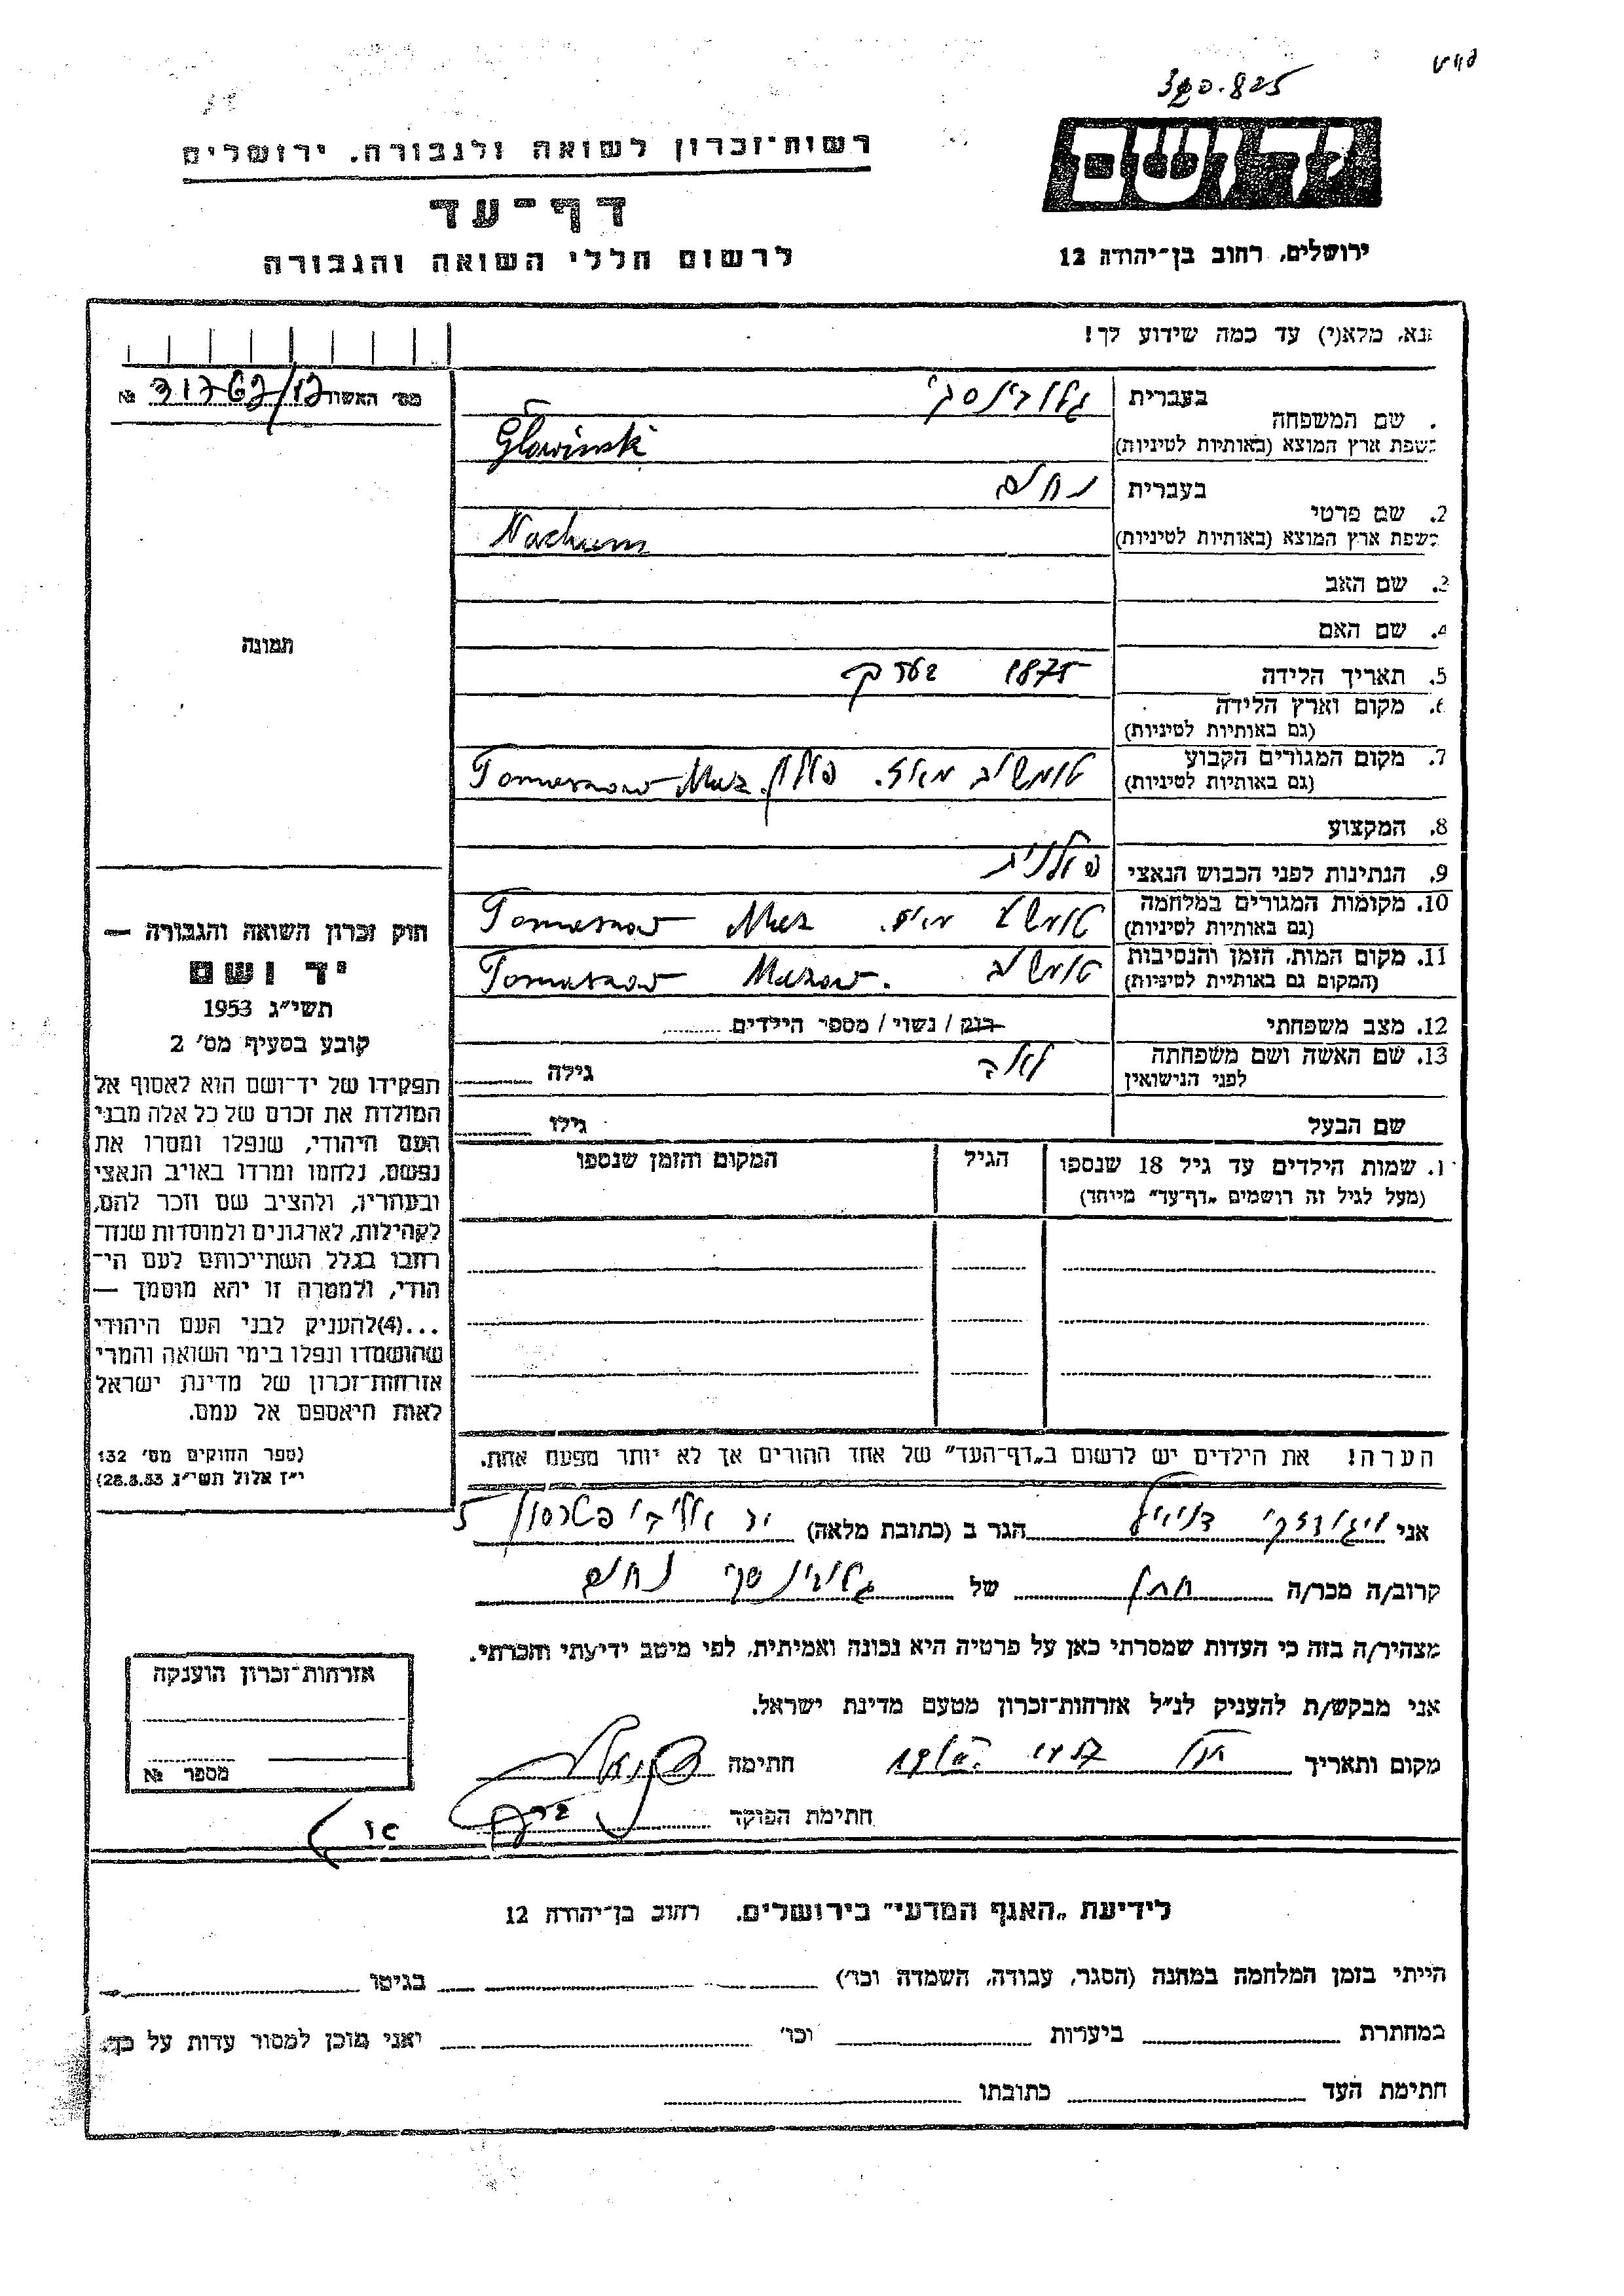 320.825
רשות־זכרון לשואה ולגבורה. ירושלים
יד ושם
דף־עד
לרשום חללי השואה והגבורה
ירושלים, רחוב בן־יהודה 12
נא, מלא(י) עד כמה שידוע לך!
מס' האשור
№
שם המשפחה
בעברית גלובינסקי
בשפת ארץ המוצא (באותיות לטיניות) Głowinski
2. שם פרטי
בעברית נחום
בשפת ארץ המוצא (באותיות לטיניות) Nachum
3. שם האב
4. שם האם
5. תאריך הלידה 1875 בערך
6. מקום וארץ הלידה
(גם באותיות לטיניות)
7. מקום המגורים הקבוע טומשוב מאז. פולין Tomaszow Maz.
(גם באותיות לטיניות)
8. המקצוע
9. הנתינות לפני הכבוש הנאצי פולנית
10. מקומות המגורים במלחמה טומשוב מאז. Tomaszow Maz
(גם באותיות לטיניות)
11. מקום המות, הזמן והנסיבות טומשוב Tomaszow Mazow.
(המקום גם באותיות לטיניות)
12. מצב משפחתי רוק / נשוי / מספר הילדים
13. שם האשה ושם משפחתה
לפני הנישואין
גילה
שם הבעל
גילו
שמות הילדים עד גיל 18 שנספו
(מעל לגיל זה רושמים „דף־עד" מיוחד)
הגיל
המקום והזמן שנספו
הערה! את הילדים יש לרשום ב„דף־העד" של אחד ההורים אך לא יותר מפעם אחת.
תמונה
חוק זכרון השואה והגבורה —
יד ושם
תשי"ג 1953
קובע בסעיף מס' 2
תפקידו של יד־ושם הוא לאסוף אל
המולדת את זכרם של כל אלה מבני
העם היהודי, שנפלו ומסרו את
נפשם, נלחמו ומרדו באויב הנאצי
ובעוזריו, ולהציב שם וזכר להם,
לקהילות, לארגונים ולמוסדות שנח־
רבו בגלל השתייכותם לעם הי־
הודי, ולמטרה זו יהא מוסמך —
...(4)להעניק לבני העם היהודי
שהושמדו ונפלו בימי השואה והמרי
אזרחות־זכרון של מדינת ישראל
לאות היאספם אל עמם.
(ספר החוקים מס' 132
י"ז אלול תשי"ג 28.8.53)
אני דניאל הגר ב (כתובת מלאה) יד אליהו פטרסון 5
קרוב/ה מכר/ה חתן של גלובינסקי נחום
מצהיר/ה בזה כי העדות שמסרתי כאן על פרטיה היא נכונה ואמיתית, לפי מיטב ידיעתי והכרתי.
אני מבקש/ת להעניק לנ"ל אזרחות־זכרון מטעם מדינת ישראל.
מקום ותאריך
חתימה
חתימת הפוקד
אזרחות־זכרון הוענקה
מספר №
לידיעת „האגף המדעי" בירושלים. רחוב בן־יהודה 12
הייתי בזמן המלחמה במחנה (הסגר, עבודה, השמדה וכו') בגיטו
במחתרת ביערות וכו' ואני מוכן למסור עדות על כך.
חתימת העד כתובתו